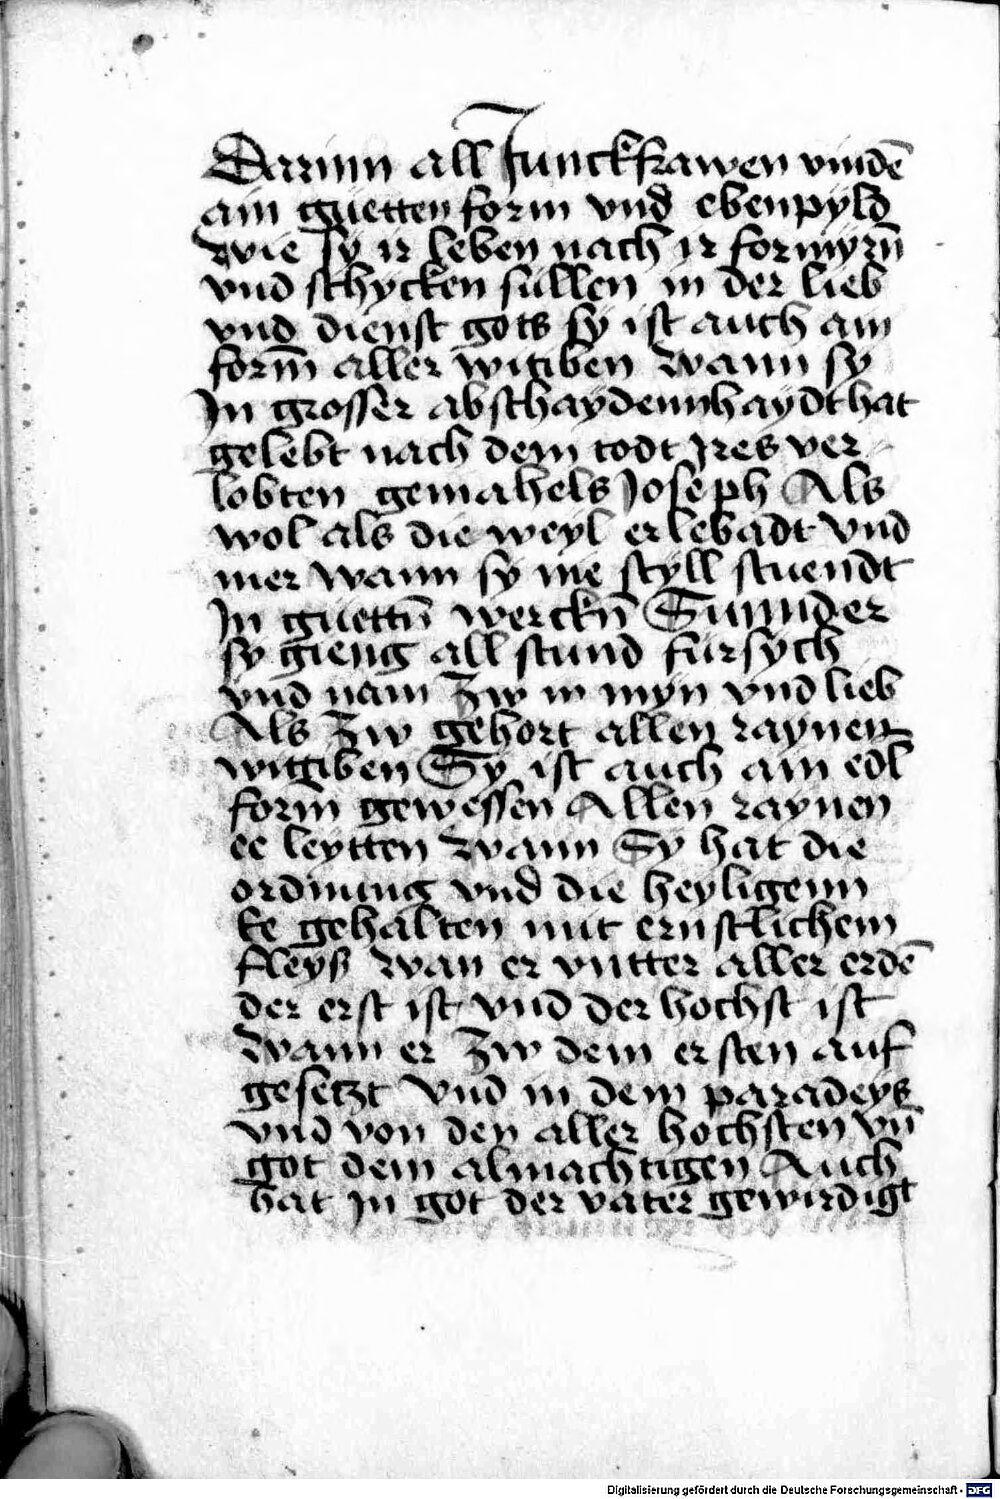 Darinn all Junckfrawen vindē
ain guetten form vnd ebenpyld
wie sy ir leben nach ir formyrn̄
vnd schycken sullen in der lieb
vnd dienst gots sy ist auch ain
form̄ aller witiben wann sy
In grosser abschaydennhaydt hat
gelebt nach dem todt Jres ver
lobten gemahels Joseph Als
wol als die weyl er lebadt vnd
mer wann sy nie styll stuendt
In guettn̄ werckn̄ Sunnder
sy gieng all stund fursych
vnd nam zw in myn vnd lieb
Als zw gehort allen raynen
witiben Sy ist auch ain edl
form gewessen Allen raynen
ee leytten wann Sy hat die
ordnung vnd die heyligenn
Ee gehalten mit ernstlichem
fleyß wan er vntter aller erdē
der erst ist vnd der hochst ist
wann er zw dem ersten auf
gesetzt vnd in dem paradeys
vnd von den aller hochsten vn̄
got dem almachtigen Auch
hat In got der vater gewirdigt
Digitalisierung gefördert durch die Deutsche Forschungsgemeinschaft - DFG